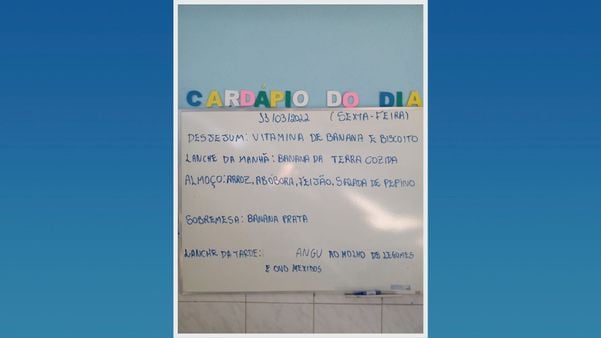 CARDÁPIO DO DIA
11/03/2022 (SEXTA-FEIRA)
DESJEJUM: VITAMINA DE BANANA E BISCOITO
LANCHE DA MANHÃ: BANANA DA TERRA COZIDA
ALMOÇO: ARROZ, ABÓBORA, FEIJÃO, SALADA DE PEPINO
SOBREMESA: BANANA PRATA
LANCHE DA TARDE: ANGU AO MOLHO DE LEGUMES
E OVO MEXIDOS